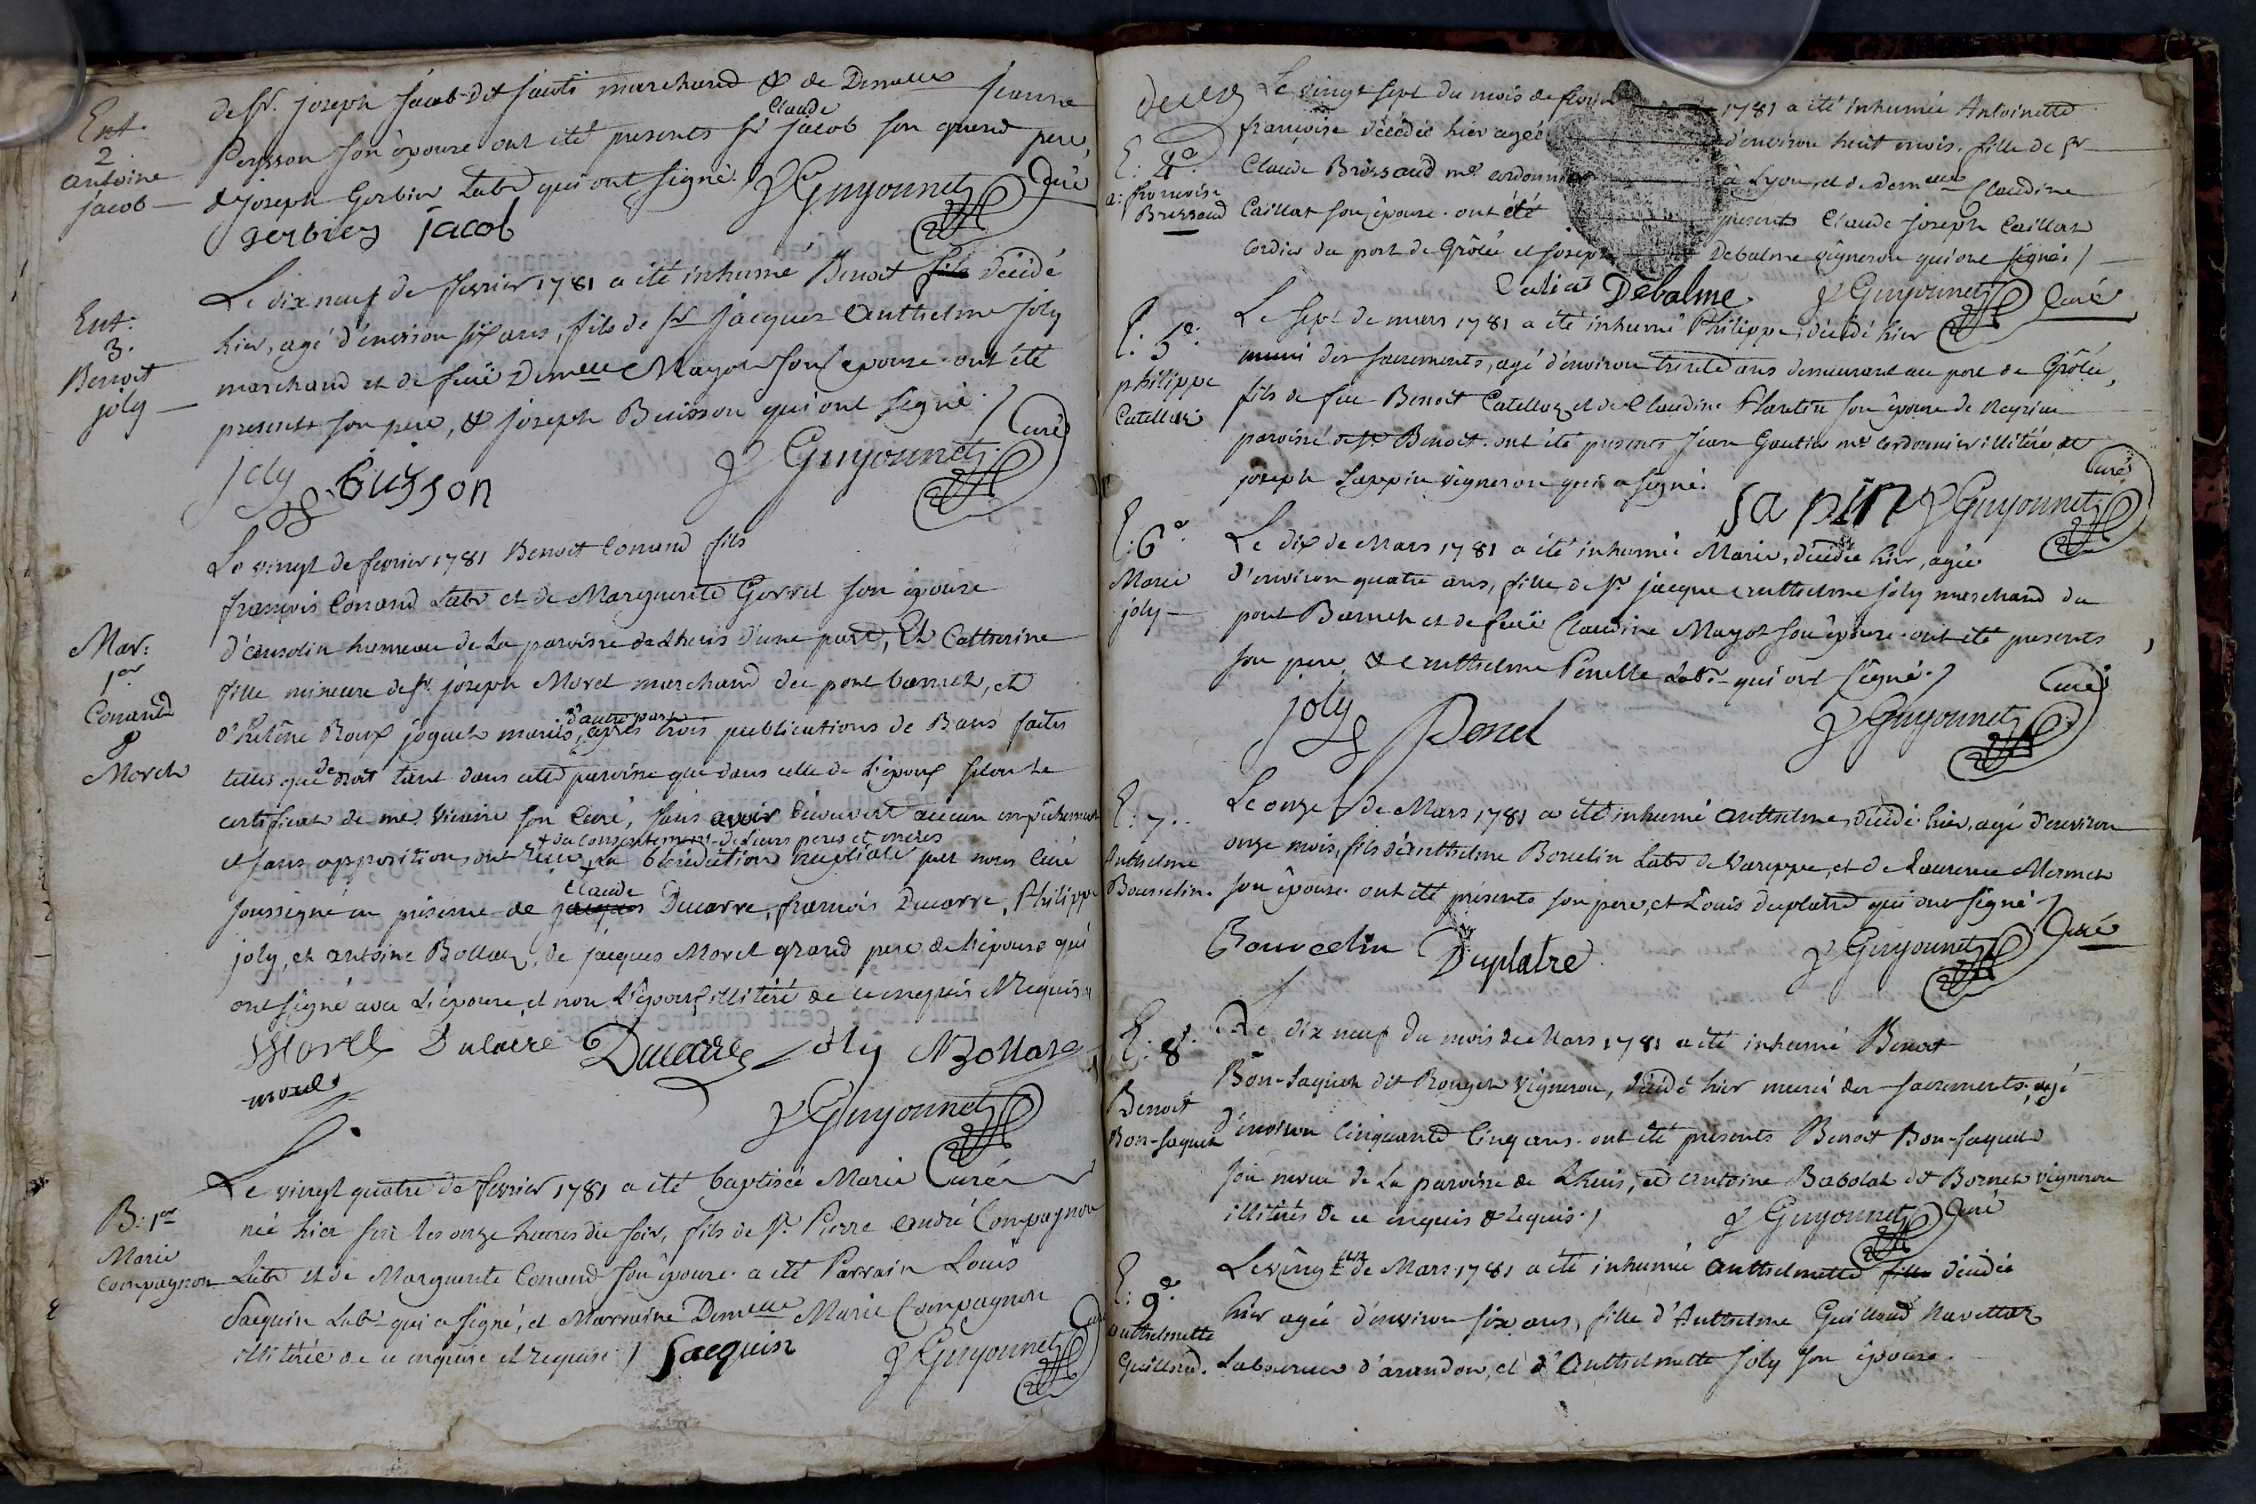 Ent.
2
antoine
jacob
de Sr. joseph jacob dit janti marchand & de Demelle jeanne
Peysson son épouse ont été presents Sr claude jacob son grand pere,
& joseph Gerbier Labr qui ont signé. Guyonnet Curé
gerbier jacob
Ent:
3.
Benoit
joly
Le dix neuf de fevrier 1781 a été inhumé Benoit fils décédé
hier, agé d'environ six ans, fils de Sr jacques Anthelme joly
marchand et de feuë Demelle Mayot son épouse. ont été
presents son pere, & joseph Buisson qui ont signé.
joly buisson Guyonnet Curé
Mar:
1er
Conand
&
Morel
Le vingt de fevrier 1781 Benoit Conand fils
françois Conand Labr et de Marguerite Gorrel son épouse
d'ansolin hameau de La paroisse de Lhuis d'une part, Et Catherine
fille mineure de Sr. joseph Morel marchand du pont bancet, et
d'helêne Roux joguet mariés, d'autre part après trois publications de Bans faites
telles que de droit tant dans cette paroisse que dans celle de L'époux selon Le
certificat de me. Vicaire son Curé, sans avoir découvert aucun empêchement
& du consentement de leurs peres et meres
et sans opposition, ont reçu La bénédiction nuptiale par nous Curé
soussigné en présence de jacques Claude Ducarre, francois Ducarre, Philippe
joly, et antoine Bollaz, de jacques Morel grand pere de L'épouse qui
ont signé avec L'épouse, et non L'époux illitéré de ce enquis & requis
Morel Ducarre Ducarre joly Bollaz
morel
Guyonnet Curé
B: 1er
Marie
Compagnon
Le vingt quatre de fevrier 1781 a été baptisée Marie
née hier sur les onze heures du soir, fils de Sr. Pierre André Compagnon
Labr et de Marguerite Conand son épouse. a été Parrain Louis
Jacquin Labr qui a signé, et Marraine Demelle Marie Compagnon
illitérée de ce enquise et requise Jacquin Guyonnet Curé
deux
E: 4e.
a: francoise
Brissaud
Le vingt sept du mois de fevrier 1781 a été inhumée Antoinette
françoise décédée hier agée d'environ huit mois. fille de Sr
Claude Brissaud me cordonnier à Lyon, et de Demelle Claudine
Caillat son épouse. ont été presents Claude joseph Caillat
cordier du port de Grôlée et joseph Debalme vigneron qui ont signé
Caliat Debalme Guyonnet Curé
E: 5e.
philippe
Catellaz
Le sept de mars 1781 a été inhumé Philippe, décédé hier
muni des sacrements, agé d'environ trente ans demeurant au port de Grôlée,
fils de feu Benoit Catellaz et de Claudine Plantin son épouse de Meyrieu
paroisse de St Benoit. ont été presents jean Gautier me cordonnier illitéré, et
joseph Sappin vigneron qui a signé.
sapin Guyonnet Curé
E: 6e
Marie
joly
Le dix de Mars 1781 a été inhumée Marie, décédée hier, agée
d'environ quatre ans, fille de Sr. jacque Anthelme joly marchand du
pont Bancet et de feuë Claudine Mayot son épouse. ont été presents
son pere & Anthelme Penelle Labr. qui ont signé.
joly Penel Guyonnet Curé
E: 7.
Anthelme
Bousselin.
Le onze de Mars 1781 a été inhumé Anthelme, décédé hier, agé d'environ
onze mois, fils d'Anthelme Bouvelin Labr de Vareppe, et de Laurence Mermet
son épouse. ont été présents son pere, et Louis duplatre qui ont signé
Bouvcelin Duplatre Guyonnet Curé
E: 8e.
Benoit
Bon-Jaquet
Le dix neuf du mois de Mars 1781 a été inhumé Benoit
Bon-Jaquet dit Ronget vigneron, décédé hier muni des sacrements, agé
d'environ cinquante cinq ans. ont été présents Benoit Bon-Jaquet
son neveu de La paroisse de Lhuis, et antoine Babolat dit Bornet vigneron
illitérés de ce enquis & requis. Guyonnet Curé
E: 9e.
Anthelmette
Guilland.
Le vingt un de Mars 1781 a été inhumée Anthelmette fille décédée
hier agée d'environ six ans, fille d'Anthelme Guilland Navettaz
Laboureur d'arandon, et d'Anthelmette joly son épouse.